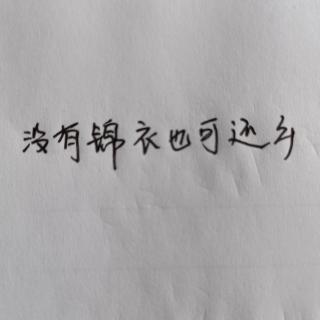 没有锦衣也可还乡